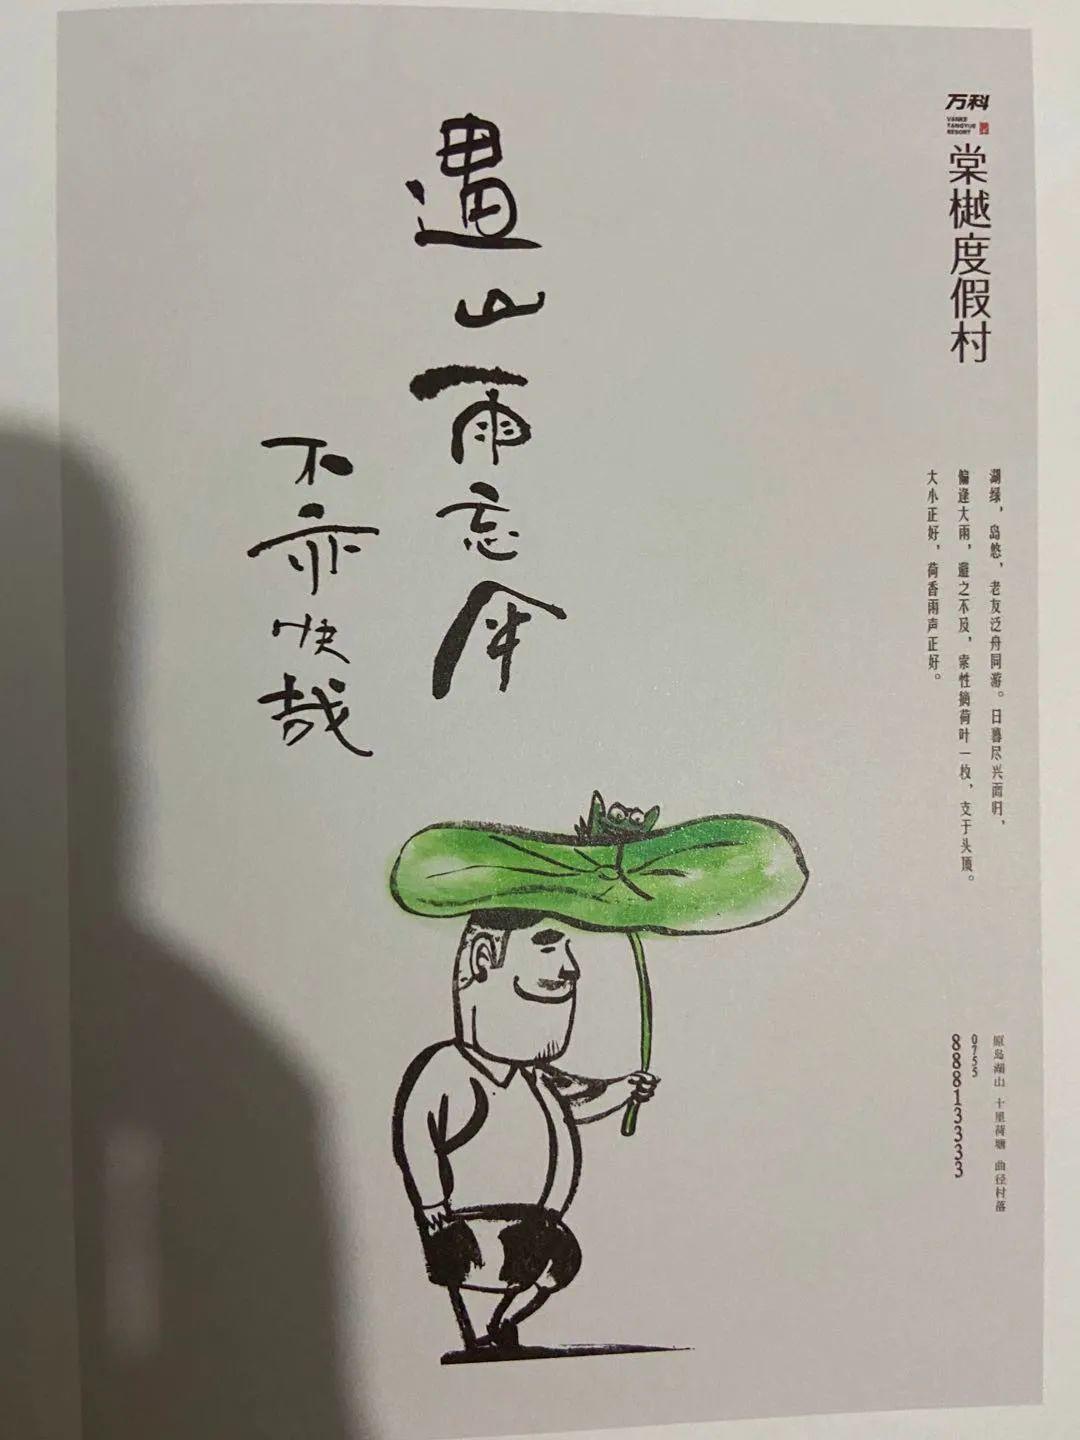 万科
VANKE
TANGYUE
RESORT
棠樾度假村
遇山雨忘伞
不亦快哉
湖绿，岛悠，老友泛舟同游。日暮尽兴而归，
偏逢大雨，避之不及，索性摘荷叶一枚，支于头顶。
大小正好，荷香雨声正好。
原岛湖山 十里荷塘 曲径村落
0755
88813333